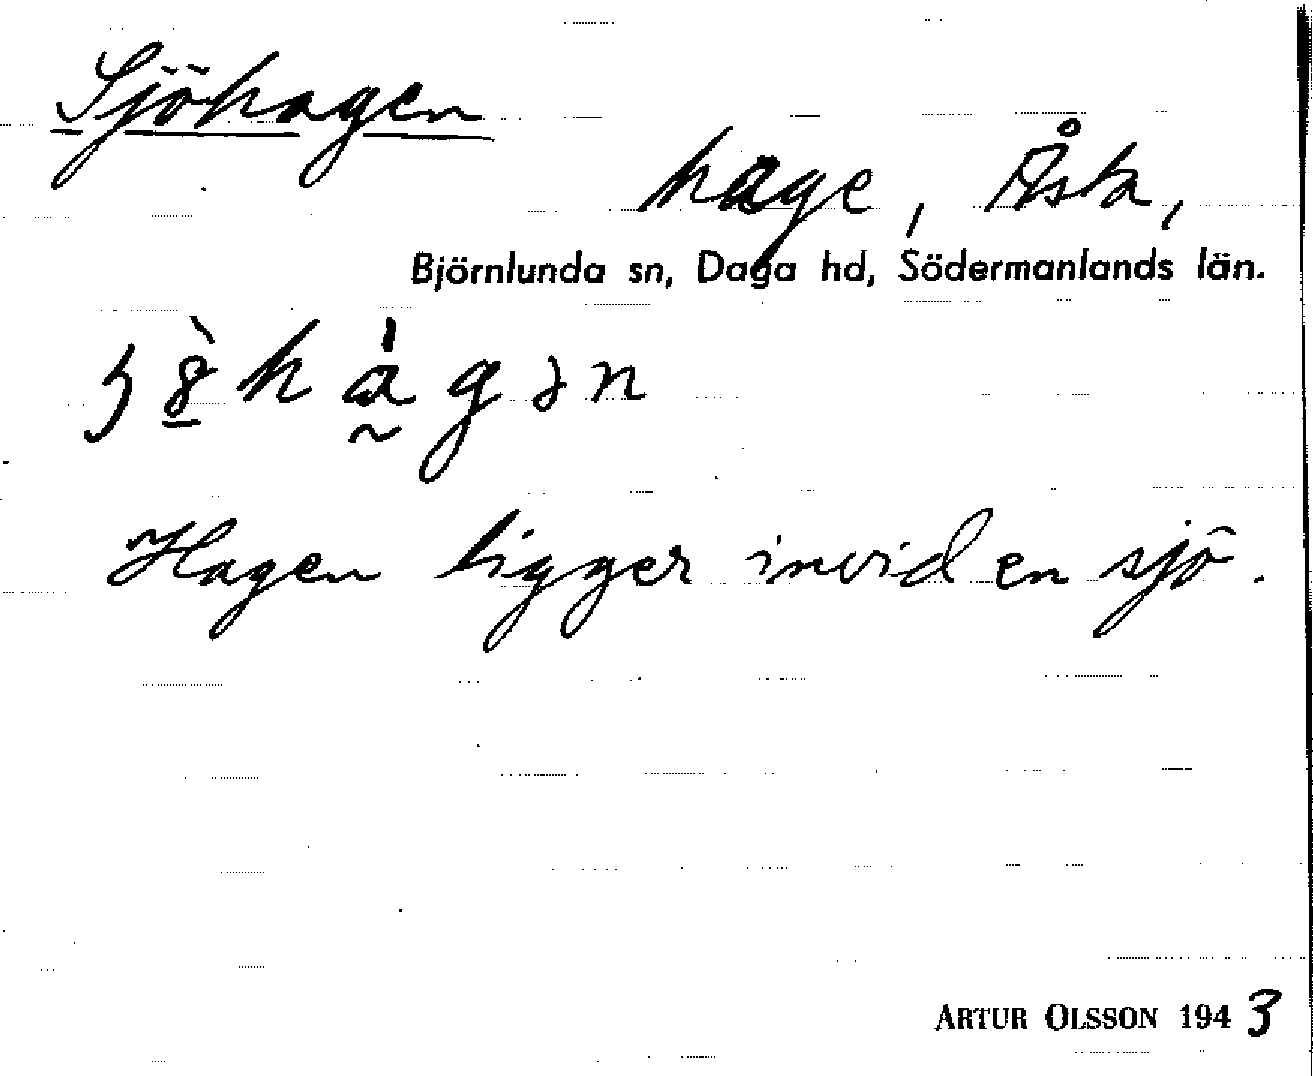 Sjöhagen
hage, Åsta,
Björnlunda sn, Daga hd, Södermanlands län.
Hagen ligger invid en sjö.
ARTUR OLSSON 1943